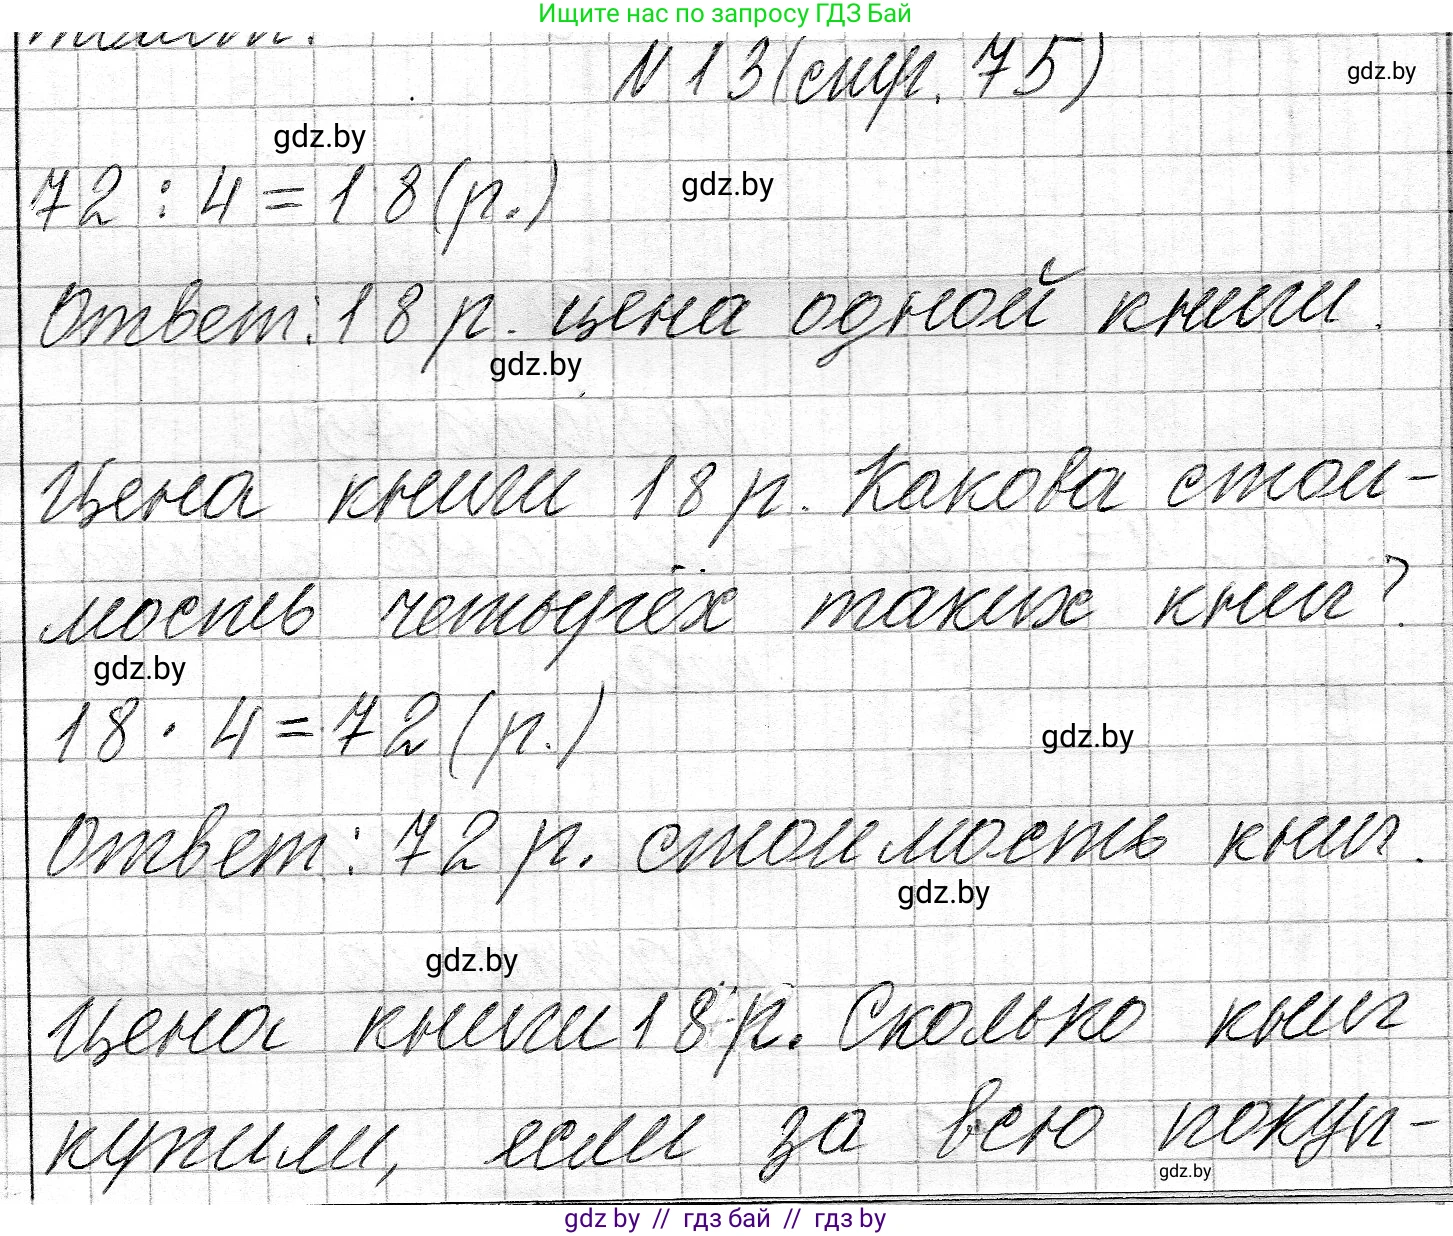 Ищите нас по запросу ГДЗ Бай
N 13 (стр. 75)
gdz.by
gdz.by
72 : 4 = 18 (р.)
gdz.by
Ответ: 18 р. цена одной книги.
gdz.by
Цена книги 18 р. Какова стои-
мость четырёх таких книг?
gdz.by
18 · 4 = 72 (р.)
gdz.by
Ответ: 72 р. стоимость книг.
gdz.by
gdz.by
Цена книги 18 р. Сколько книг
купили, если за всю покуп-
gdz.by
gdz by // гдз бай // гдз by